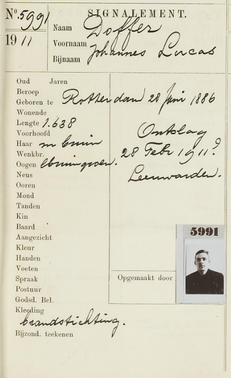 No. 5991
SIGNALEMENT.
1911
Naam Doffer
Voornaam Johannes Lucas
Bijnaam
Oud Jaren
Beroep
Geboren te Rotterdam 28 Juni 1886
Wonende
Lengte 1.638
Voorhoofd Ontslag
Haar m bruin 28 Febr 1911?
Wenkbr.
Oogen Leeuwarden.
Neus
Ooren
Mond
Tanden
Kin
Baard
Aangezicht
Kleur
Handen
Voeten
Spraak
Postuur
Godsd. Bel.
Kleeding
brandstichting.
Bijzond. teekenen
5991
Opgemaakt door